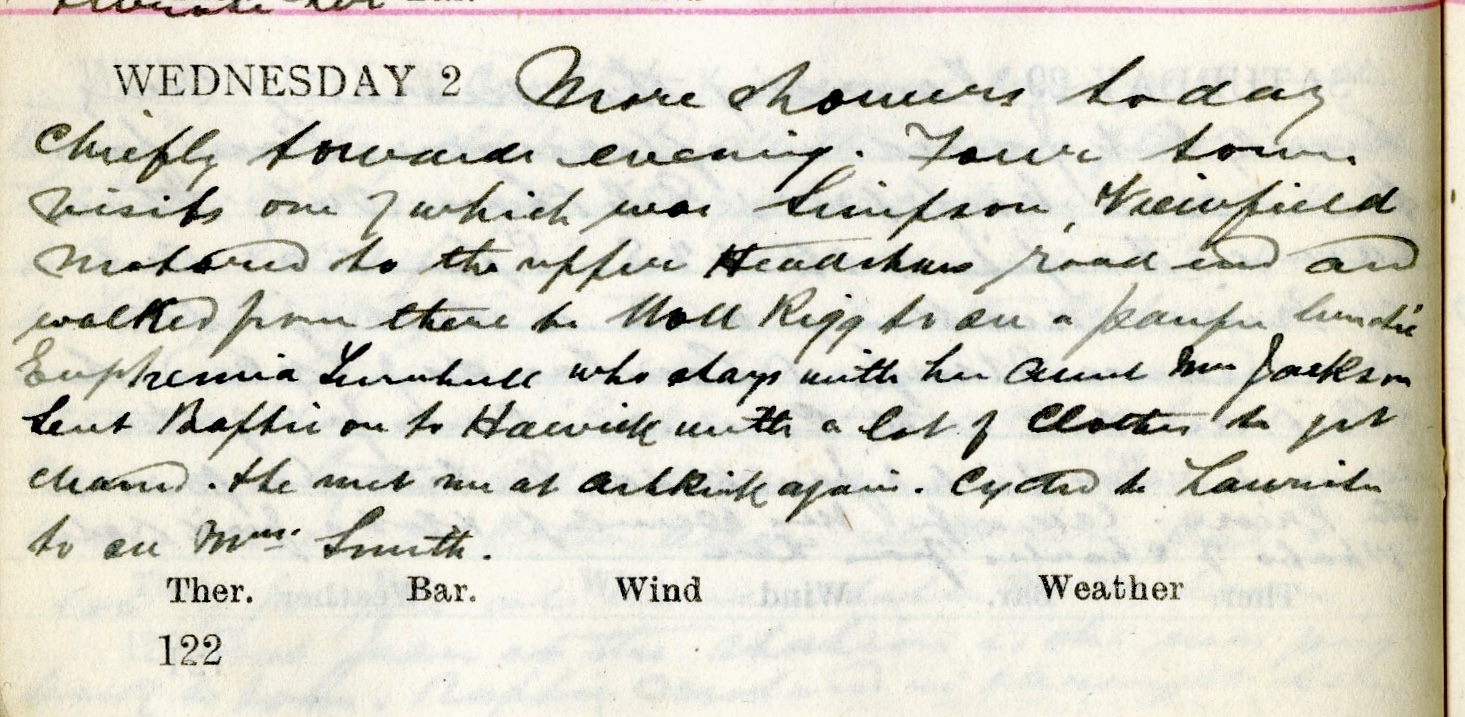 WEDNESDAY 2 More showers today
chiefly towards evening. Four town
visits one of which was Simpson, Viewfield
Motored to the upper Headshaw road end and
walked from there to Woll Rigg to see a pauper lunatic
Euphemia Turnbull who stays with her aunt Mrs Jackson
Sent on to Hawick with a lot of clothes to get
cleaned. She met me at Ashkirk again. Cycled to
to see Mrs. Smith.
Ther. Bar. Wind Weather
122